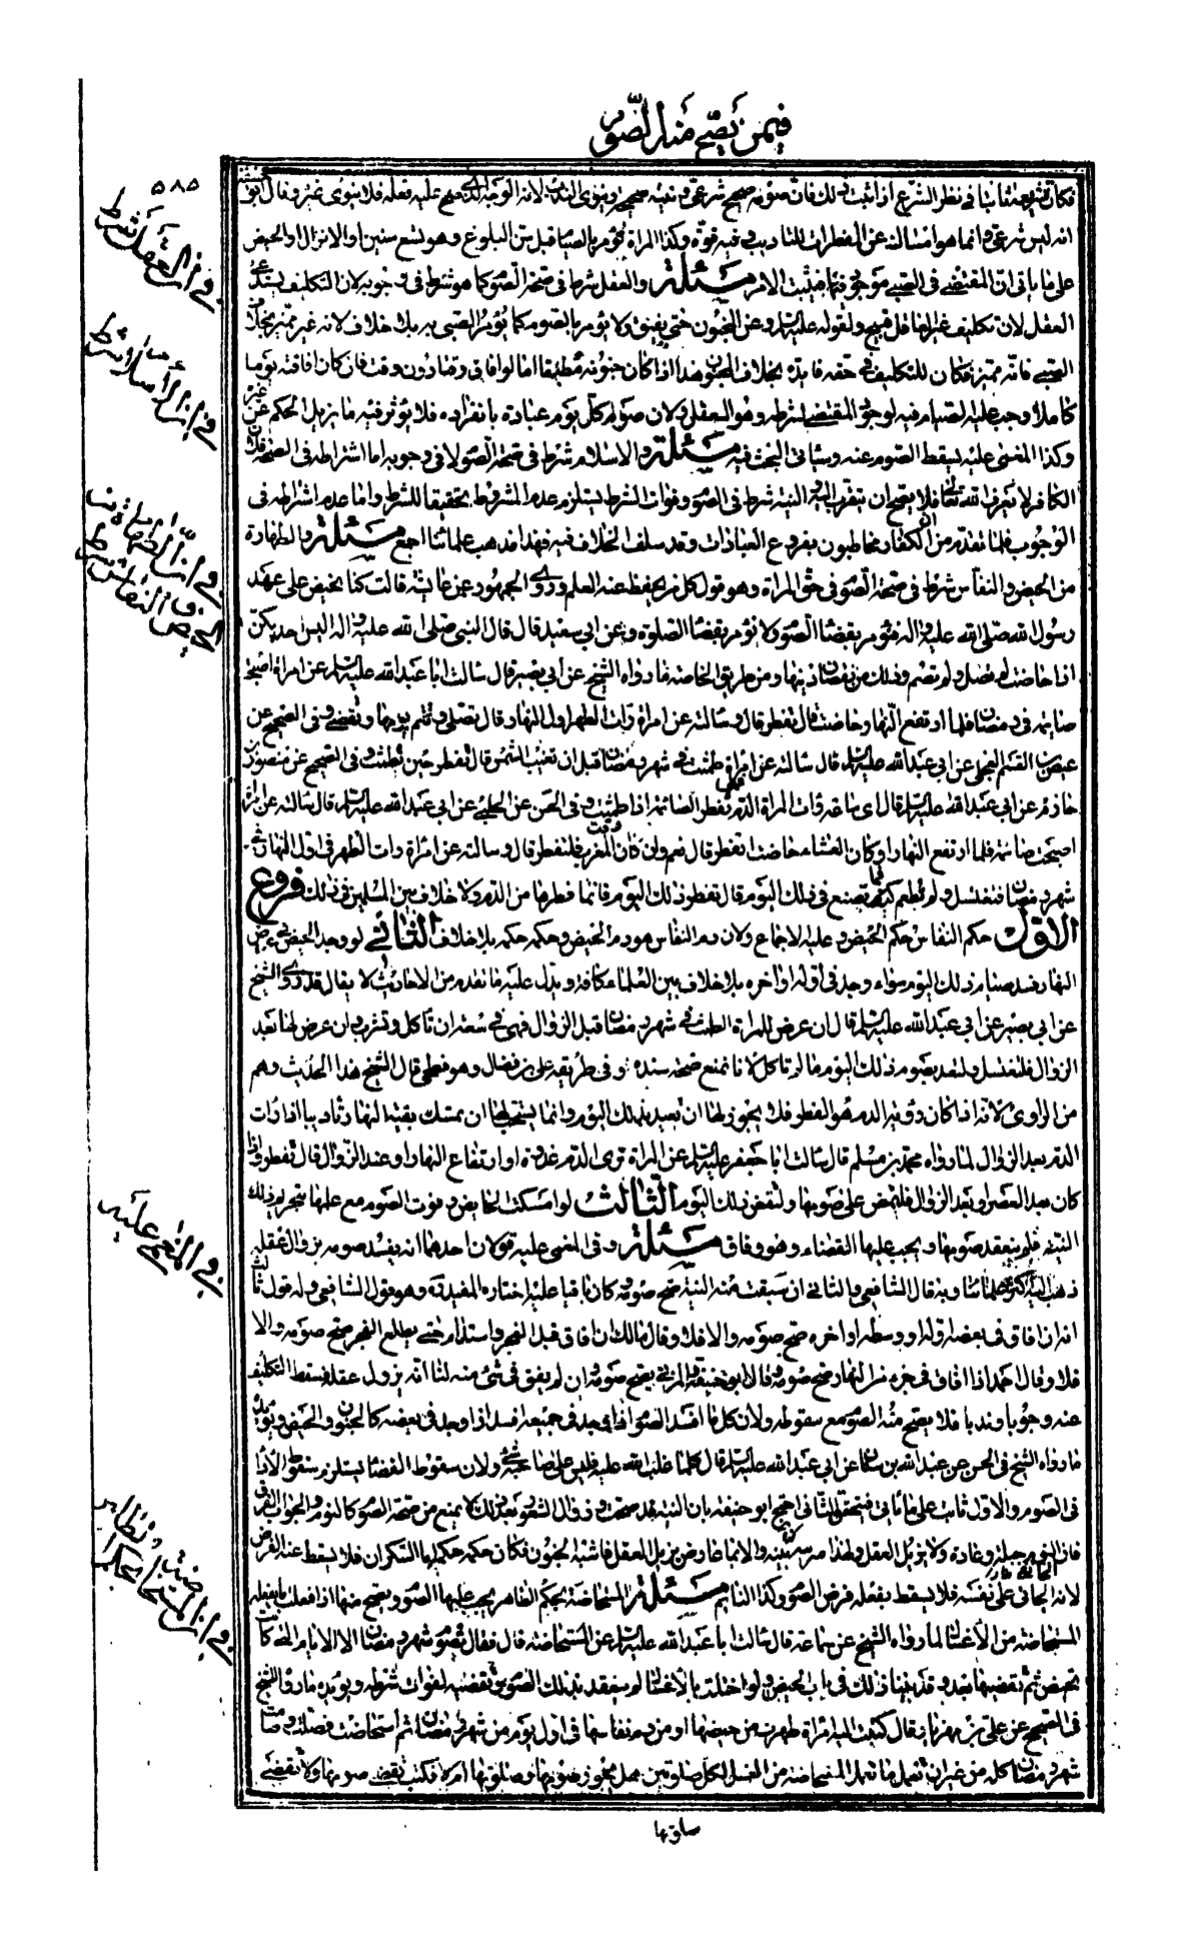 فيمن يصح منه الصوم
٥٨٥
في ان العقل شرط
في ان الاسلام شرط
في ان الطهارة من
الحيض و النفاس شرط
في المغمى عليه
في ان المستحاضة
فكان نية صومه ثابتا في نظر الشرع اذا ثبت ذلك فان صومه صحيح شرعي و نيته صحيحة و ينوي الندب لانه الوجه الذي يقع عليه فعله فلا ينوي غيره و قال ابو حنيفة
انه ليس شرعي و انما هو امساك عن المفطرات للتاديب و فيه قوة و كذا المراة تؤمر بالصيام قبل سن البلوغ و هو تسع سنين او الانزال او الحيض
على ما ياتي ان المقتضي في الصبي موجود فيها فيثبت الامر مسئلة و العقل شرط في صحة الصوم كما هو شرط في وجوبه لان التكليف يستدعي
العقل لان تكليف غير العاقل قبيح و لقوله عليه السلم و عن المجنون حتى يفيق و لا يؤمر بالصوم كما يؤمر الصبي به بلا خلاف لانه غير مميز بخلاف
الصبي فانه مميز فكان للتكليف في حقه فايدة بخلاف المجنون هذا اذا كان جنونه مطبقا اما لو افاق وقتا دون وقت فان كان افاقته يوما
كاملا وجب عليه الصيام فيه لوجود المقتضي لشرطه و هو العقل و لان صوم كل يوم عبادة بانفراده فلا يؤثر فيه ما يزيل الحكم عن غيره
و كذا المغمى عليه يسقط الصوم عنه و سياتي البحث فيه مسئلة و الاسلام شرط في صحة الصوم لا في وجوبه اما اشتراطه في الصحة فلان
الكافر لا يعرف الله تعالى فلا يصح ان يتقرب اليه و النية شرط في الصوم و فوات الشرط يستلزم عدم المشروط تحقيقا للشرط و اما عدم اشتراطه في
الوجوب فلما تقدم من ان الكفار مخاطبون بفروع العبادات و قد سلف الخلاف فيه فهذا مذهب علمائنا اجمع مسئلة و الطهارة
من الحيض و النفاس شرط في صحة الصوم في حق المراة و هو قول كل من يحفظ عنه العلم و روى الجمهور عن عايشة قالت كنا نحيض على عهد
رسول الله صلى الله عليه و اله فنؤمر بقضاء الصوم و لا نؤمر بقضاء الصلوة و عن ابي سعيد قال قال النبي صلى الله عليه و اله اليس احديكن
اذا حاضت لم تصل و لم تصم و ذلك من نقصان دينها و من طريق الخاصة ما رواه الشيخ عن ابي بصير قال سالت ابا عبد الله عليه السلم عن امراة اصبحت
صايمة في رمضان فلما ارتفع النهار حاضت قال تفطر قال و سالته عن امراة رات الطهر اول النهار قال تصلي و تتم يومها و تقضي و في الصحيح عن
عيص بن القسم البجلي عن ابي عبد الله عليه السلم قال سالته عن امراة طمثت في شهر رمضان قبل ان تغيب الشمس قال تفطر حين تطمث و في الصحيح عن منصور بن
حازم عن ابي عبد الله عليه السلم قال اي ساعة رات المراة الدم تفطر الصائمة اذا طمثت و في الحسن عن الحلبي عن ابي عبد الله عليه السلم قال سالته عن امراة
اصبحت صايمة فلما ارتفع النهار او كان العشاء حاضت اتفطر قال نعم و ان كان وقت المغرب فلتفطر قال و سالته عن امراة رات الطهر في اول النهار في
شهر رمضان فتغتسل و لم تطعم كيف تصنع في ذلك اليوم قال تفطر ذلك اليوم فانما فطرها من الدم و لا خلاف بين المسلمين في ذلك فروع
الاول حكم النفاس حكم الحيض و عليه الاجماع و لان دم النفاس هو دم الحيض و حكمه حكمه بلا خلاف الثاني لو وجد الحيض في جزء من
النهار فسد صيام ذلك اليوم سواء وجد في اوله او اخره بلا خلاف بين العلماء كافة و يدل عليه ما تقدم من الاحاديث لا يقال قد روى الشيخ
عن ابي بصير عن ابي عبد الله عليه السلم قال ان عرض للمراة الطمث في شهر رمضان قبل الزوال فهي في سعة ان تاكل و تشرب و ان عرض لها بعد
الزوال فلتغتسل و لتعتد بصوم ذلك اليوم ما لم تاكل لانا نمنع صحة سنده و في طريقه علي بن فضال و هو فطحي قال الشيخ هذا الحديث وهم
من الراوي لانه اذا كان رؤية الدم هو المفطر فلا يجوز لها ان تعتد بذلك اليوم و انما يستحب لها ان تمسك بقية النهار تاديبا اذا رات
الدم بعد الزوال لما رواه محمد بن مسلم قال سالت ابا جعفر عليه السلم عن المراة ترى الدم غدوة او ارتفاع النهار او عند الزوال قال تفطر و اذا
كان بعد العصر او بعد الزوال فلتمض على صومها و لتقض ذلك اليوم الثالث لو امسكت الحايض و نوت الصوم مع علمها بتحريم ذلك
النية فلم ينعقد صومها و يجب عليها القضاء و هو وفاق مسئلة و في المغمى عليه قولان احدهما انه يفسد صومه بزوال عقله
ذهب اليه اكثر علمائنا و به قال الشافعي و الثاني ان سبقت منه النية صح صومه و كان باقيا عليه اختاره المفيد ره و هو قول الشافعي و له قول ثالث
انه ان افاق في بعضه اوله او وسطه او اخره صح صومه و الا فلا و قال مالك ان افاق قبل الفجر و استدام حتى يطلع الفجر صح صومه و الا
فلا و قال احمد اذا افاق في جزء من النهار صح صومه و قال ابو حنيفة و المزني يصح صومه و ان لم يفق في شئ منه لنا انه بزوال عقله يسقط التكليف
عنه وجوبا و ندبا فلا يصح منه الصوم مع سقوطه و لان كل ما افسد الصوم اذا وجد في جميعه افسد اذا وجد في بعضه كالجنون و الحيض و يؤيده
ما رواه الشيخ في الحسن عن عبد الله بن سنان عن ابي عبد الله عليه السلم قال كلما غلب الله عليه فليس على صاحبه شئ و لان سقوط القضاء يستلزم سقوط الاداء
في الصوم و الاول ثابت على ما ياتي فيتحقق الثاني احتج ابو حنيفة بان النية قد صحت و زوال الشعور بعد ذلك لا يمنع من صحة الصوم كالنوم و الجواب الفرق
فان النوم جبلة و عادة و لا يزيل العقل و لهذا متى نبه تنبه و الاغماء عارض يزيل العقل فاشبه الجنون فكان حكمه حكمه اما السكران فلا يسقط عنه الفرض
لانه الجاني على نفسه فلا يسقط بفعله فرض الصوم و كذا النايم مسئلة المستحاضة بحكم الطاهر يجب عليها الصوم و يصح منها اذا فعلت ما يفعله
المستحاضة من الاغسال لما رواه الشيخ عن سماعة قال سالت ابا عبد الله عليه السلم عن المستحاضة قال فقال تصوم شهر رمضان الا الايام التي كانت
تحيض ثم تقضيها بعد و قد بينا ذلك في باب الحيض و لو اخلت بالاغسال لم ينعقد بذلك الصوم و تقضيه لفوات شرطه و يؤيده ما رواه الشيخ
في الصحيح عن علي بن مهزيار قال كتبت اليه امراة طهرت من حيضها او من دم نفاسها في اول يوم من شهر رمضان ثم استحاضت فصلت و صامت
شهر رمضان كله من غير ان تعمل ما تعمل المستحاضة من الغسل لكل صلوتين هل يجوز صومها و صلوتها ام لا فكتب تقضي صومها و لا تقضي
صلوتها